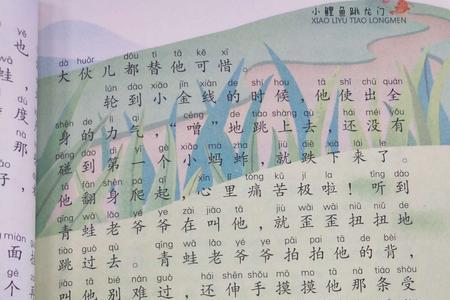 小鲤鱼跳龙门
XIAO LIYU TIAO LONGMEN
dà huǒr dōu tì tā kě xī
大伙儿都替他可惜。
lún dào xiǎo jīn xiàn de shí hou, tā shǐ chū quán
轮到小金线的时候，他使出全
shēn de lì qì, "cēng" de tiào shàng qù, hái méi yǒu
身的力气，“噌”地跳上去，还没有
pèng dào dì yī gè xiǎo mǎ zha, jiù diē xià lái le
碰到第一个小蚂蚱，就跌下来了。
tā fān shēn pá qǐ, xīn lǐ tòng kǔ jí la! tīng dào
他翻身爬起，心里痛苦极啦！听到
qīng wā lǎo yé ye zài jiào tā, jiù wāi wāi niǔ niǔ de
青蛙老爷爷在叫他，就歪歪扭扭地
tiào guò qù. qīng wā lǎo yé ye pāi pai tā de bèi
跳过去。青蛙老爷爷拍拍他的背，
jiào tā bié nán guò, hái shēn shǒu mō mo tā nà tiáo shòu
叫他别难过，还伸手摸摸他那条受
yě
也
蛙，
dù
度
nà
那
子，
miàn
面
gè
个